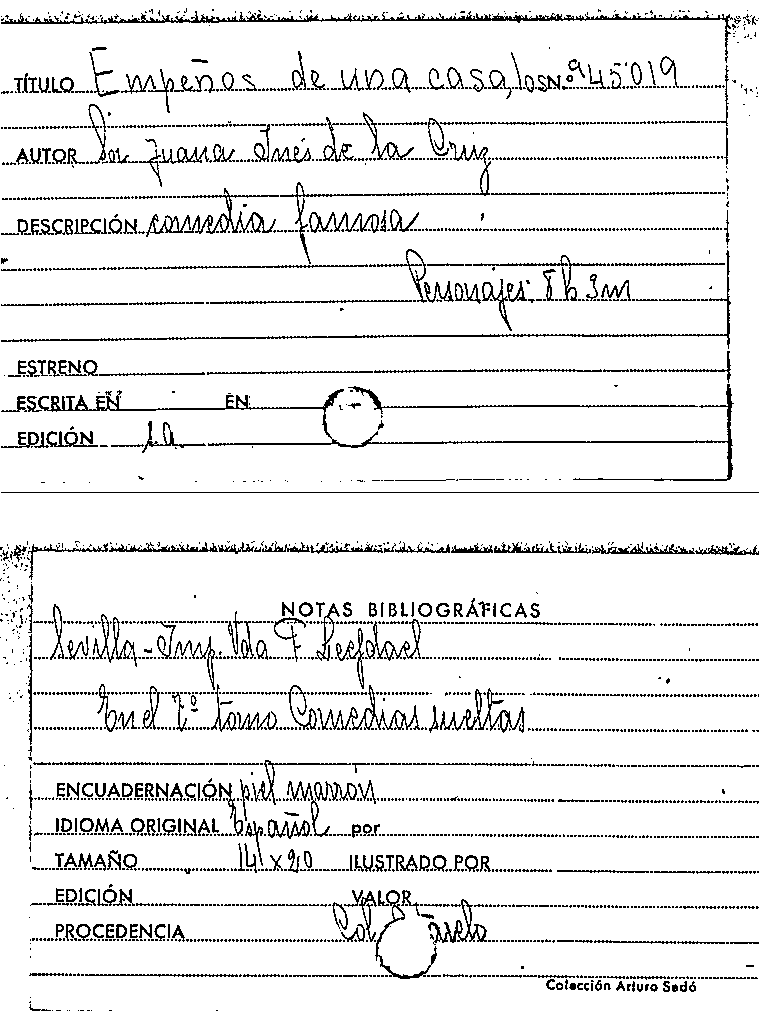 TÍTULO Empeños de una casa, los Nº 45019
AUTOR Sor Juana Inés de la Cruz
DESCRIPCIÓN comedia famosa
Personajes: 8 h 3 m
ESTRENO
ESCRITA EN EN
EDICIÓN 1a
NOTAS BIBLIOGRÁFICAS
Sevilla - Imp. Vda F Leefdael
En el 7º tomo Comedias sueltas
ENCUADERNACIÓN piel marrón
IDIOMA ORIGINAL Español por
TAMAÑO 14 x 20 ILUSTRADO POR
EDICIÓN VALOR
PROCEDENCIA Col
Colección Arturo Sedó